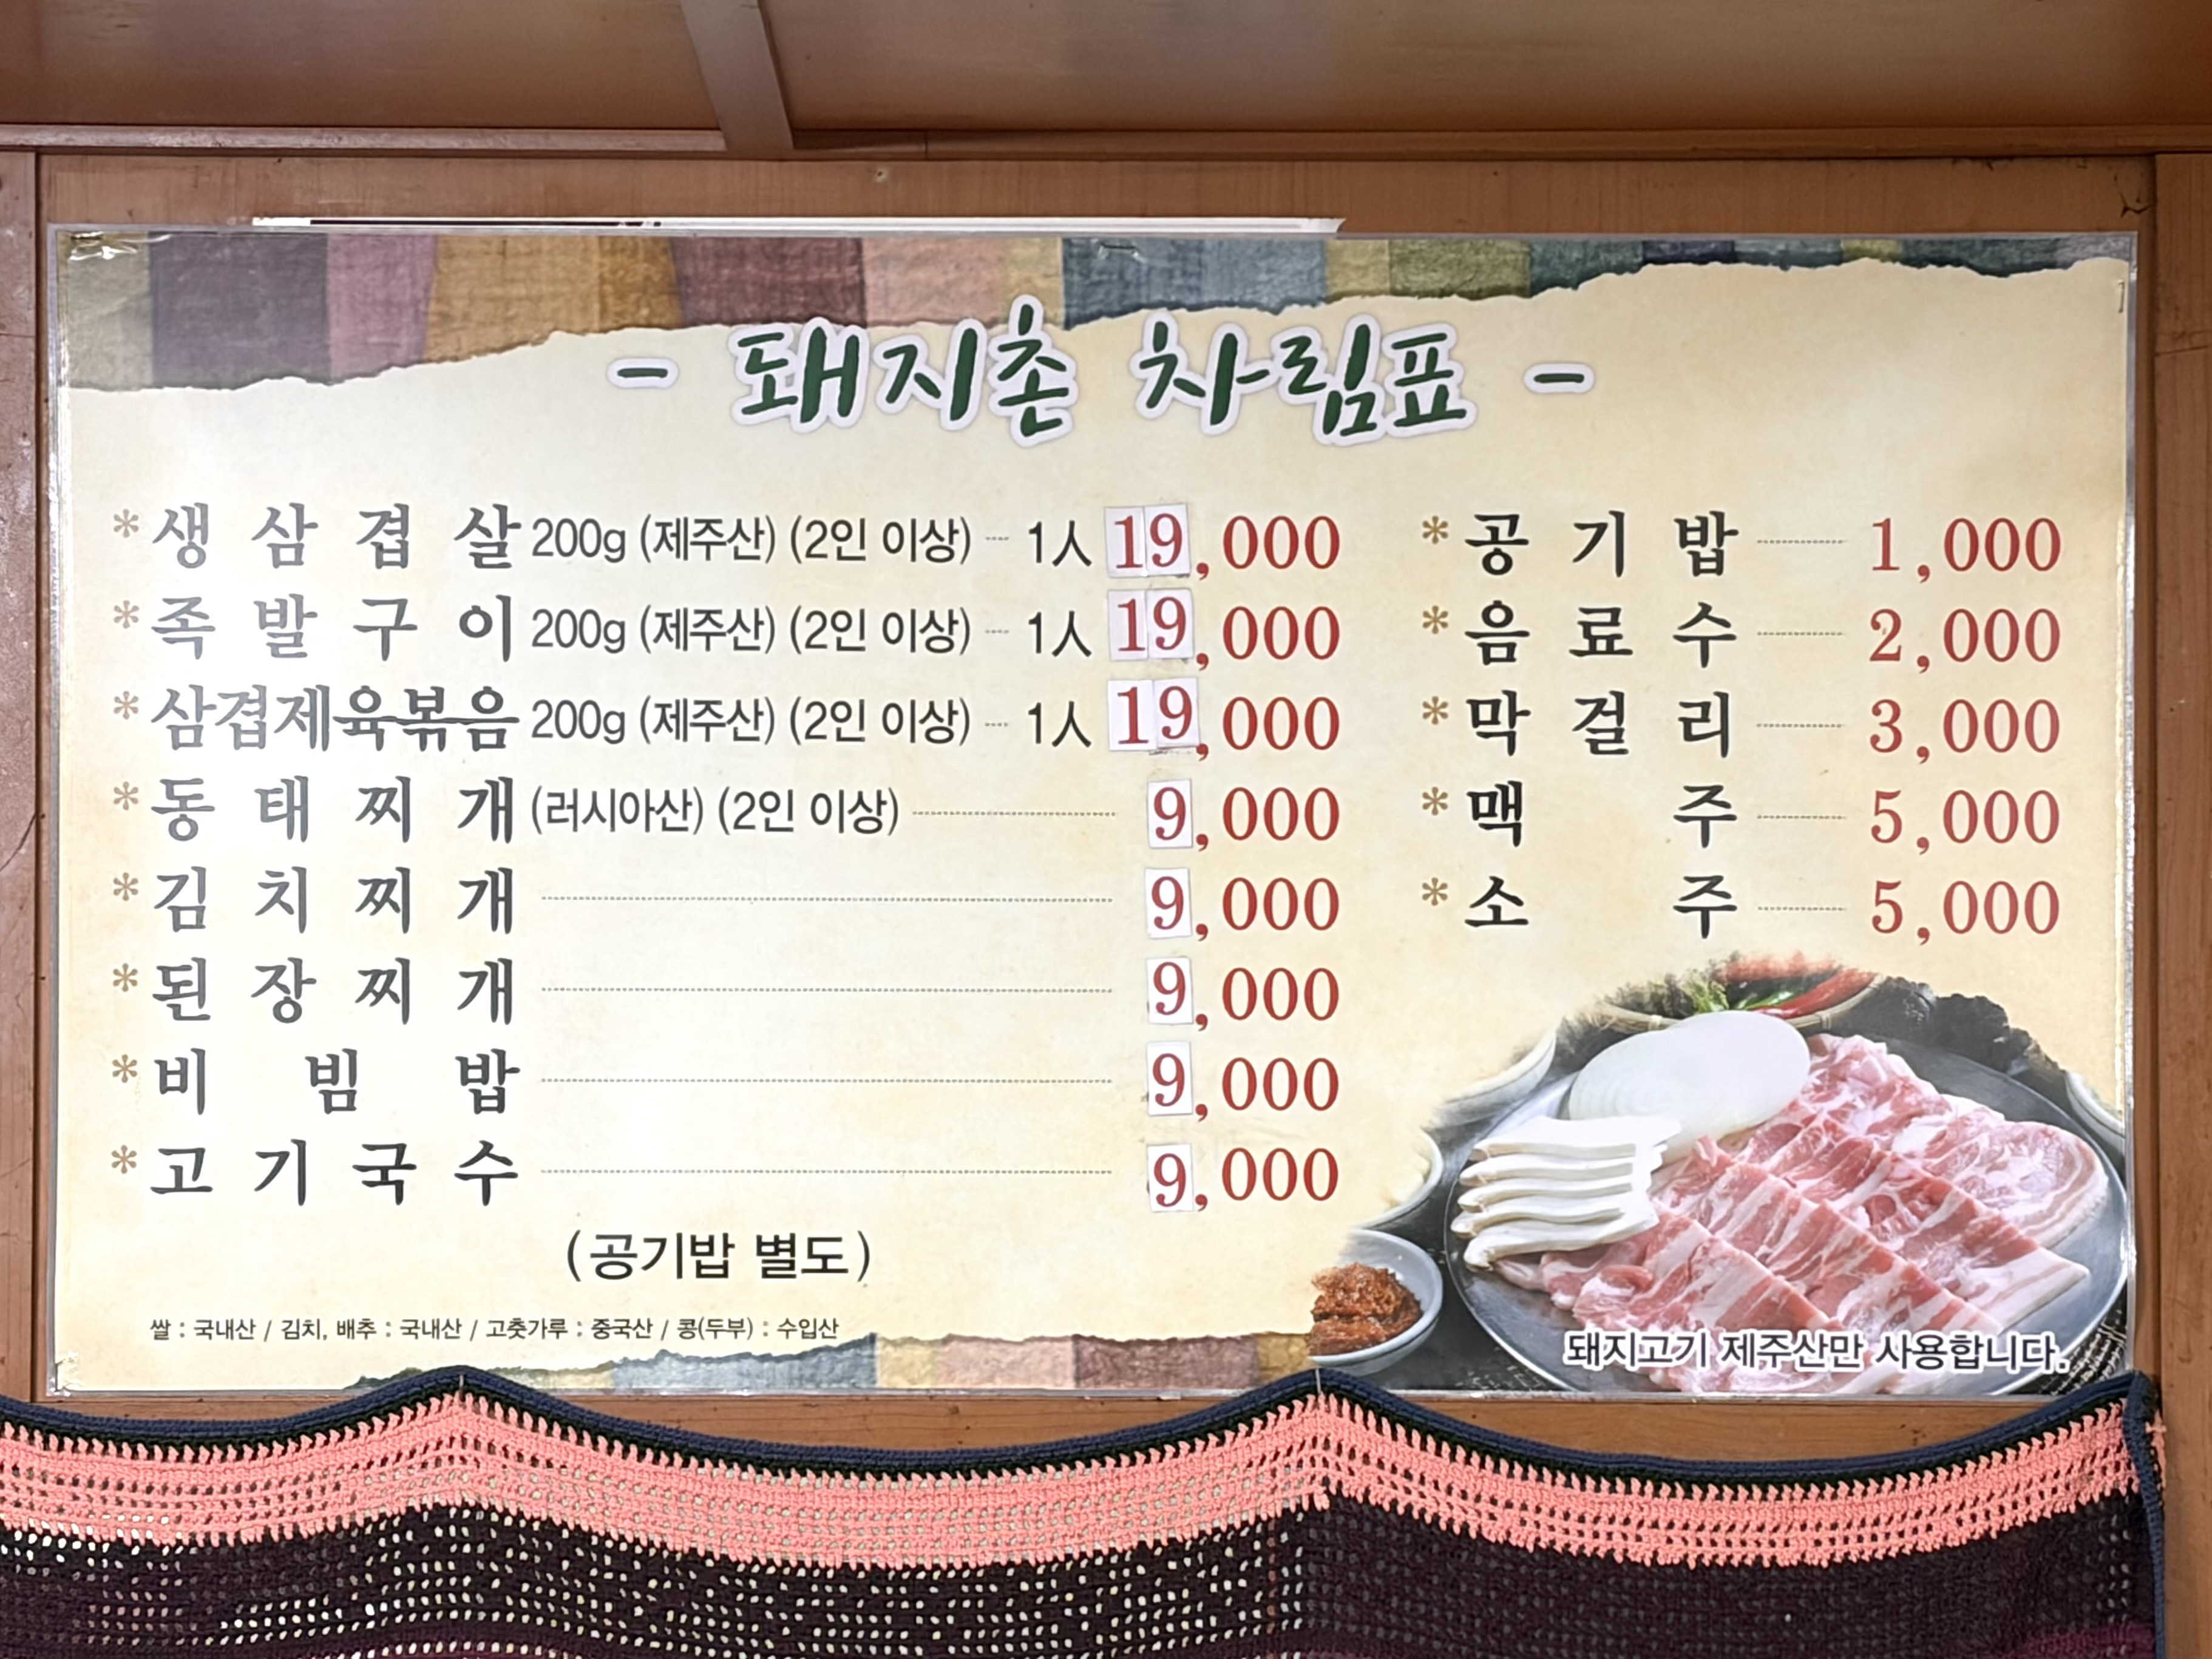 - 돼지촌 차림표 -
* 생삼겹살 200g (제주산) (2인 이상) 1人 19,000
* 족발구이 200g (제주산) (2인 이상) 1人 19,000
* 삼겹제육볶음 200g (제주산) (2인 이상) 1人 19,000
* 동태찌개 (러시아산) (2인 이상) 9,000
* 김치찌개 9,000
* 된장찌개 9,000
* 비빔밥 9,000
* 고기국수 9,000
(공기밥 별도)
쌀 : 국내산 / 김치, 배추 : 국내산 / 고춧가루 : 중국산 / 콩(두부) : 수입산
* 공기밥 1,000
* 음료수 2,000
* 막걸리 3,000
* 맥주 5,000
* 소주 5,000
돼지고기 제주산만 사용합니다.